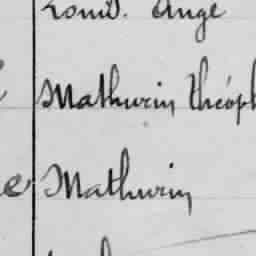 Louis. Ange
Mathurin Théoph
e Mathurin